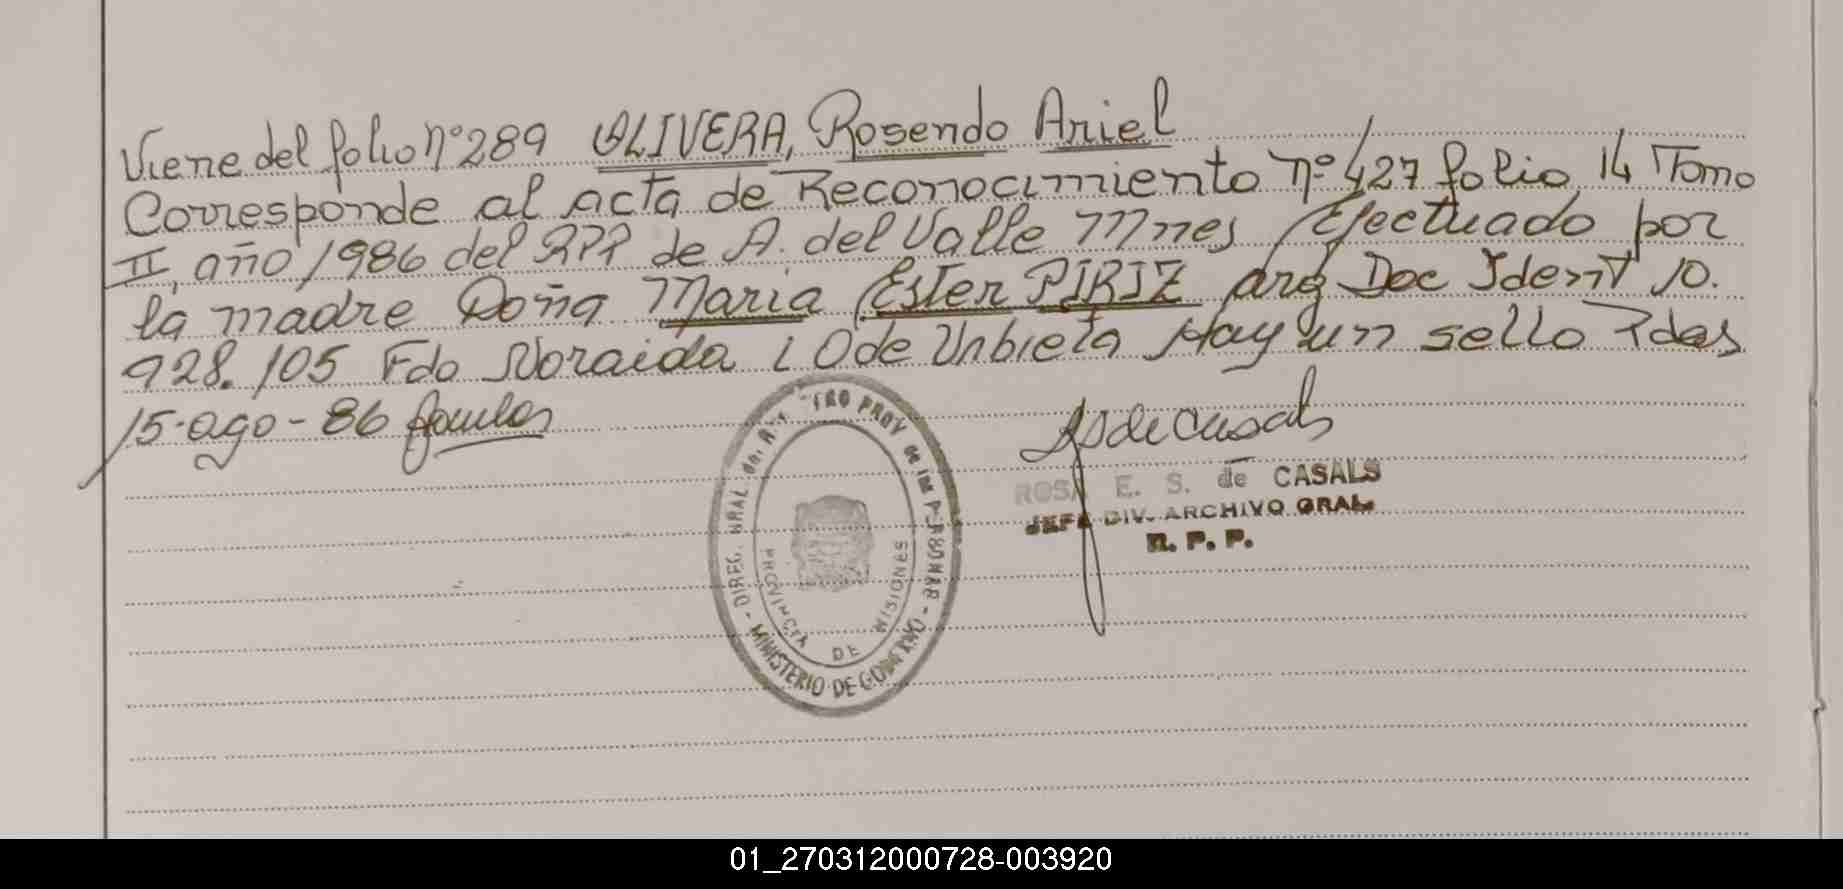 Viene del folio nº 289 OLIVERA, Rosendo Ariel
Corresponde al acta de Reconocimiento nº 427 folio 14 Tomo
II, año 1986 del RPP de A. del Valle Mnes Efectuado por
la madre Doña Maria Ester PIRIZ arg Doc Ident 10.
928.105 Fdo Noraida i O de Urbieta Hay un sello Pdas
15-ago-86
ROSA E. S. de CASALS
JEFA DIV. ARCHIVO GRAL.
R. P. P.
MINISTERIO DE GOBIERNO
PROVINCIA DE MISIONES
01_270312000728-003920